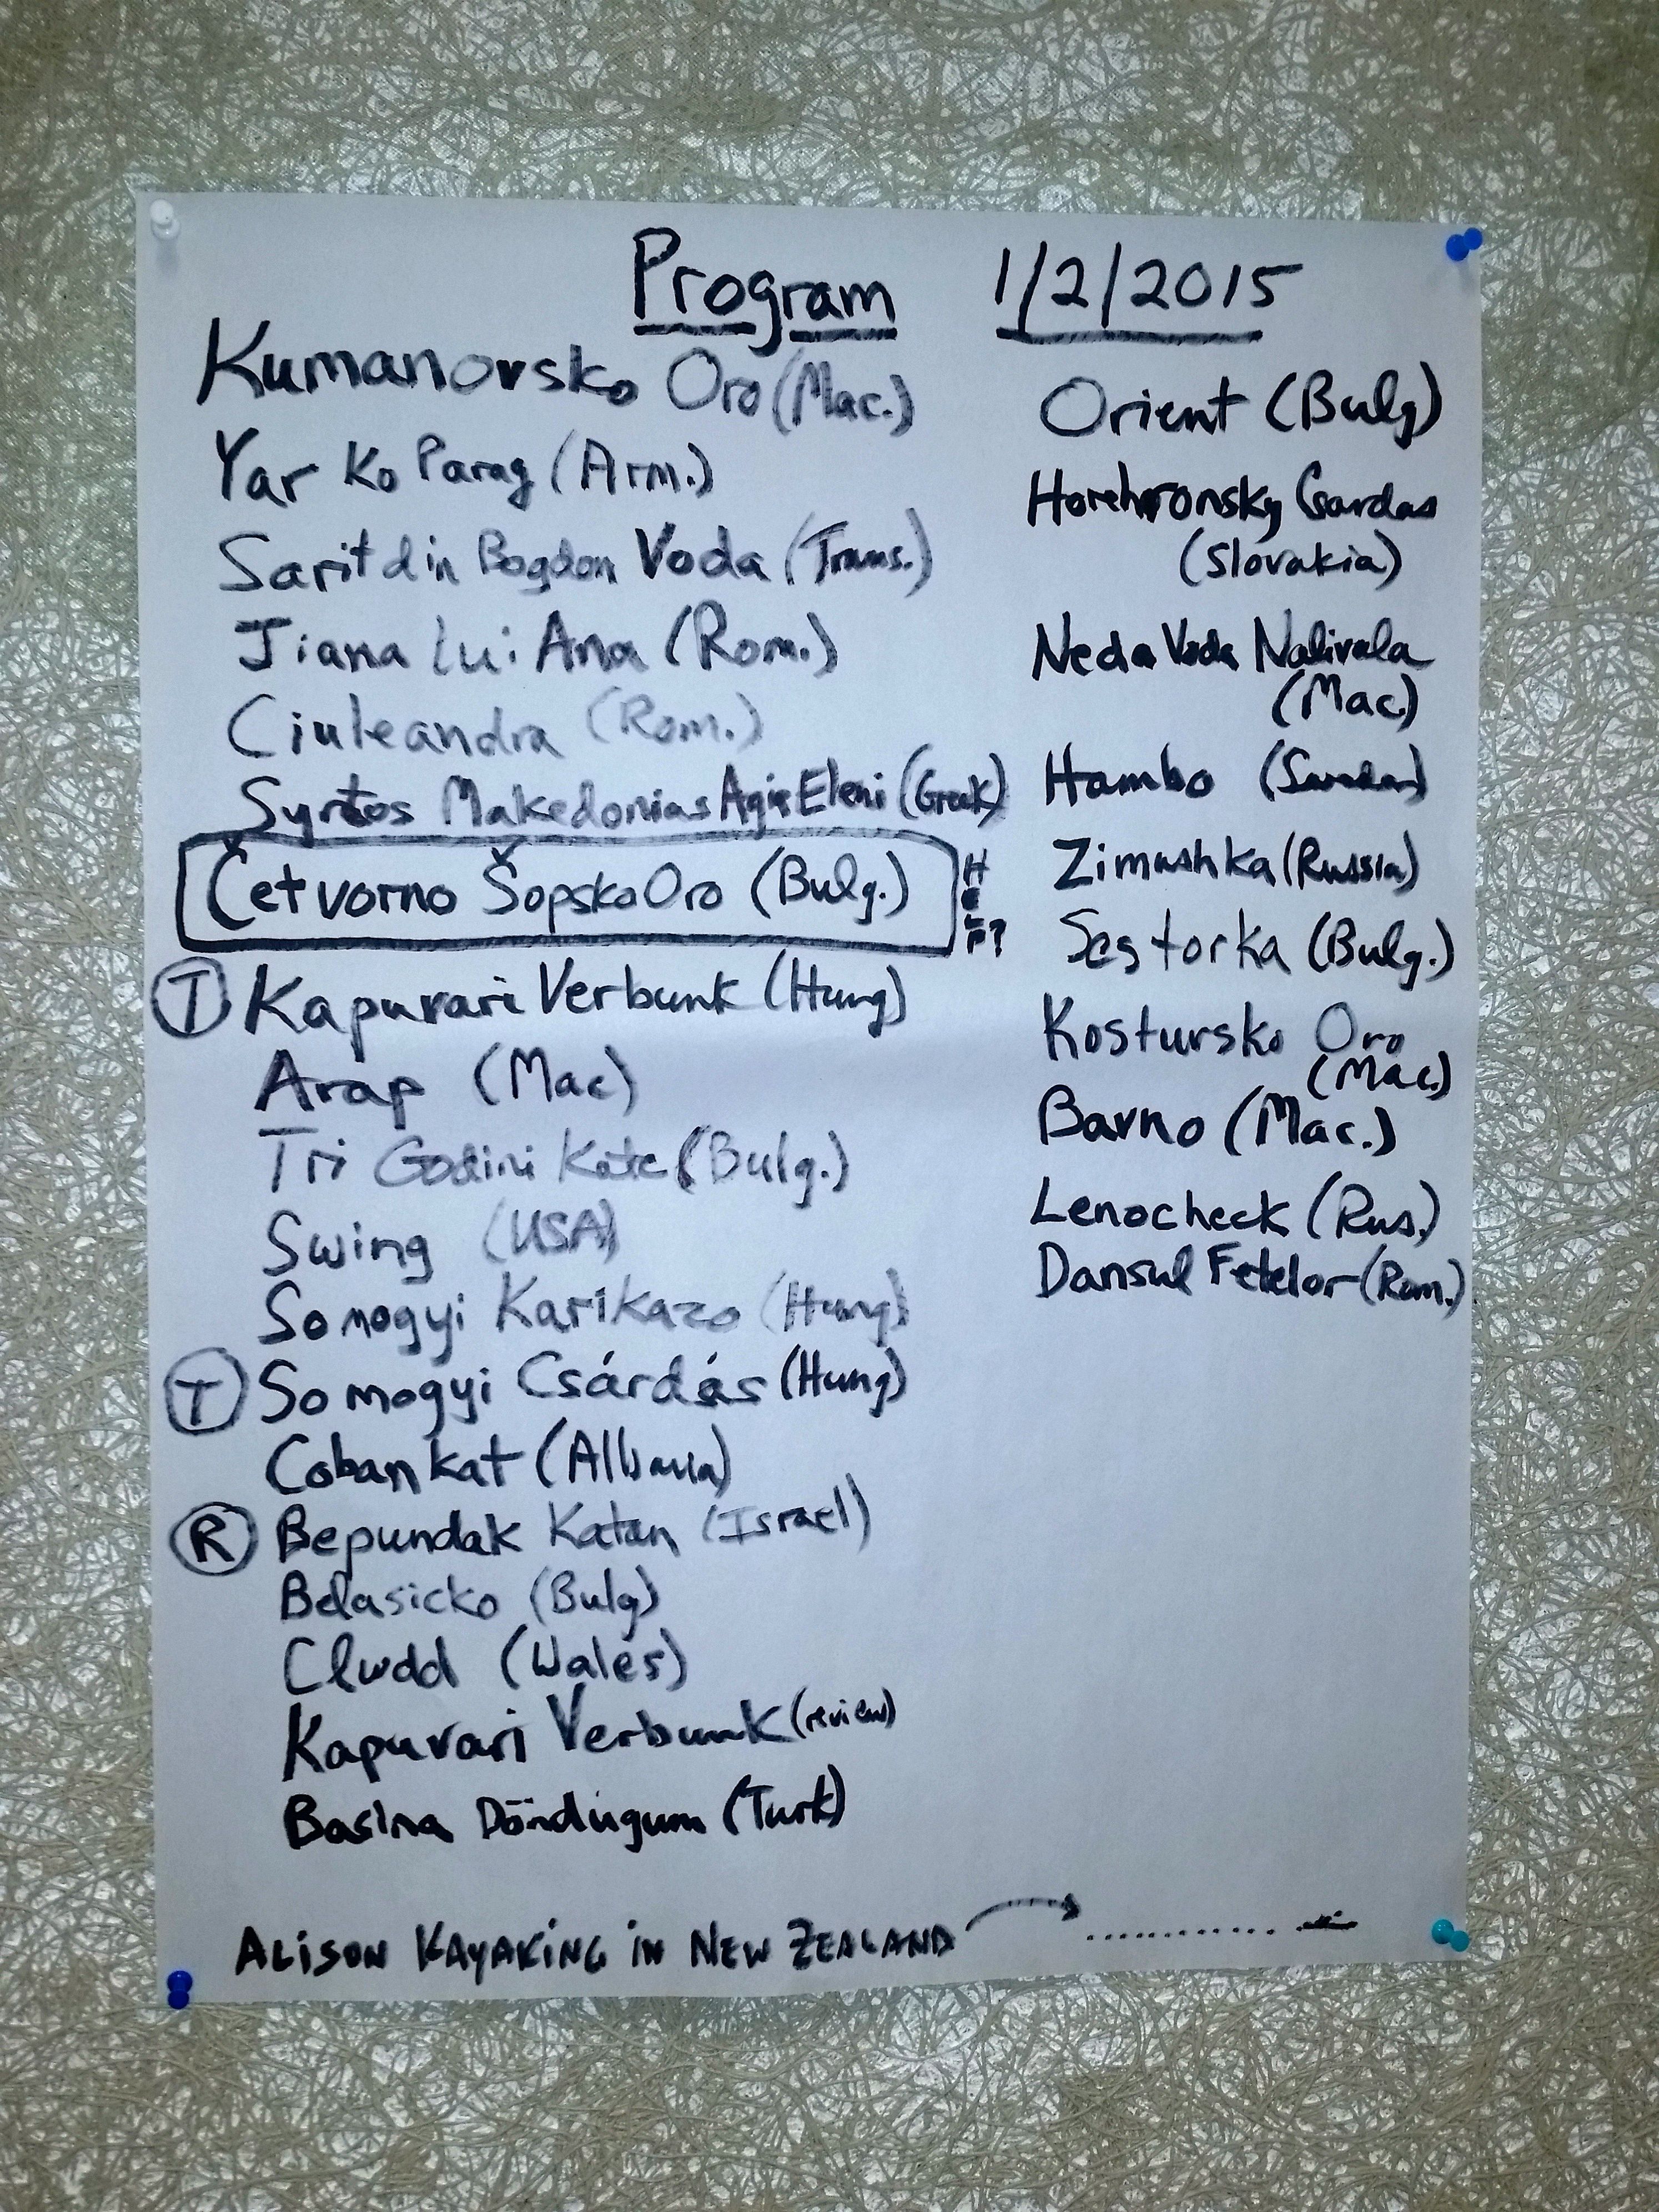 Program 1/2/2015
Kumanovsko Oro (Mac.)
Yar Ko Parag (Arm.)
Sarit din Bogdan Voda (Trans.)
Jiana Lui Ana (Rom.)
Ciuleandra (Rom.)
Syrtos Makedonias Agia Eleni (Greek)
Četvorno Šopsko Oro (Bulg.) HELP?
T Kapuvari Verbunk (Hung)
Arap (Mac)
Tri Godini Kate (Bulg.)
Swing (USA)
Somogyi Karikazo (Hung)
T Somogyi Csárdás (Hung)
Cobankat (Albania)
R Bepundak Katan (Israel)
Belasicko (Bulg)
Clwdd (Wales)
Kapuvari Verbunk (review)
Basina Döndügum (Turk)
Orient (Bulg)
Horehronsky Csardas
(Slovakia)
Neda Voda Nalivala
(Mac)
Hambo
Zimushka (Russia)
Sestorka (Bulg.)
Kostursko Oro
(Mac)
Bavno (Mac.)
Lenocheck (Rus.)
Dansul Fetelor (Rom.)
ALISON KAYAKING IN NEW ZEALAND